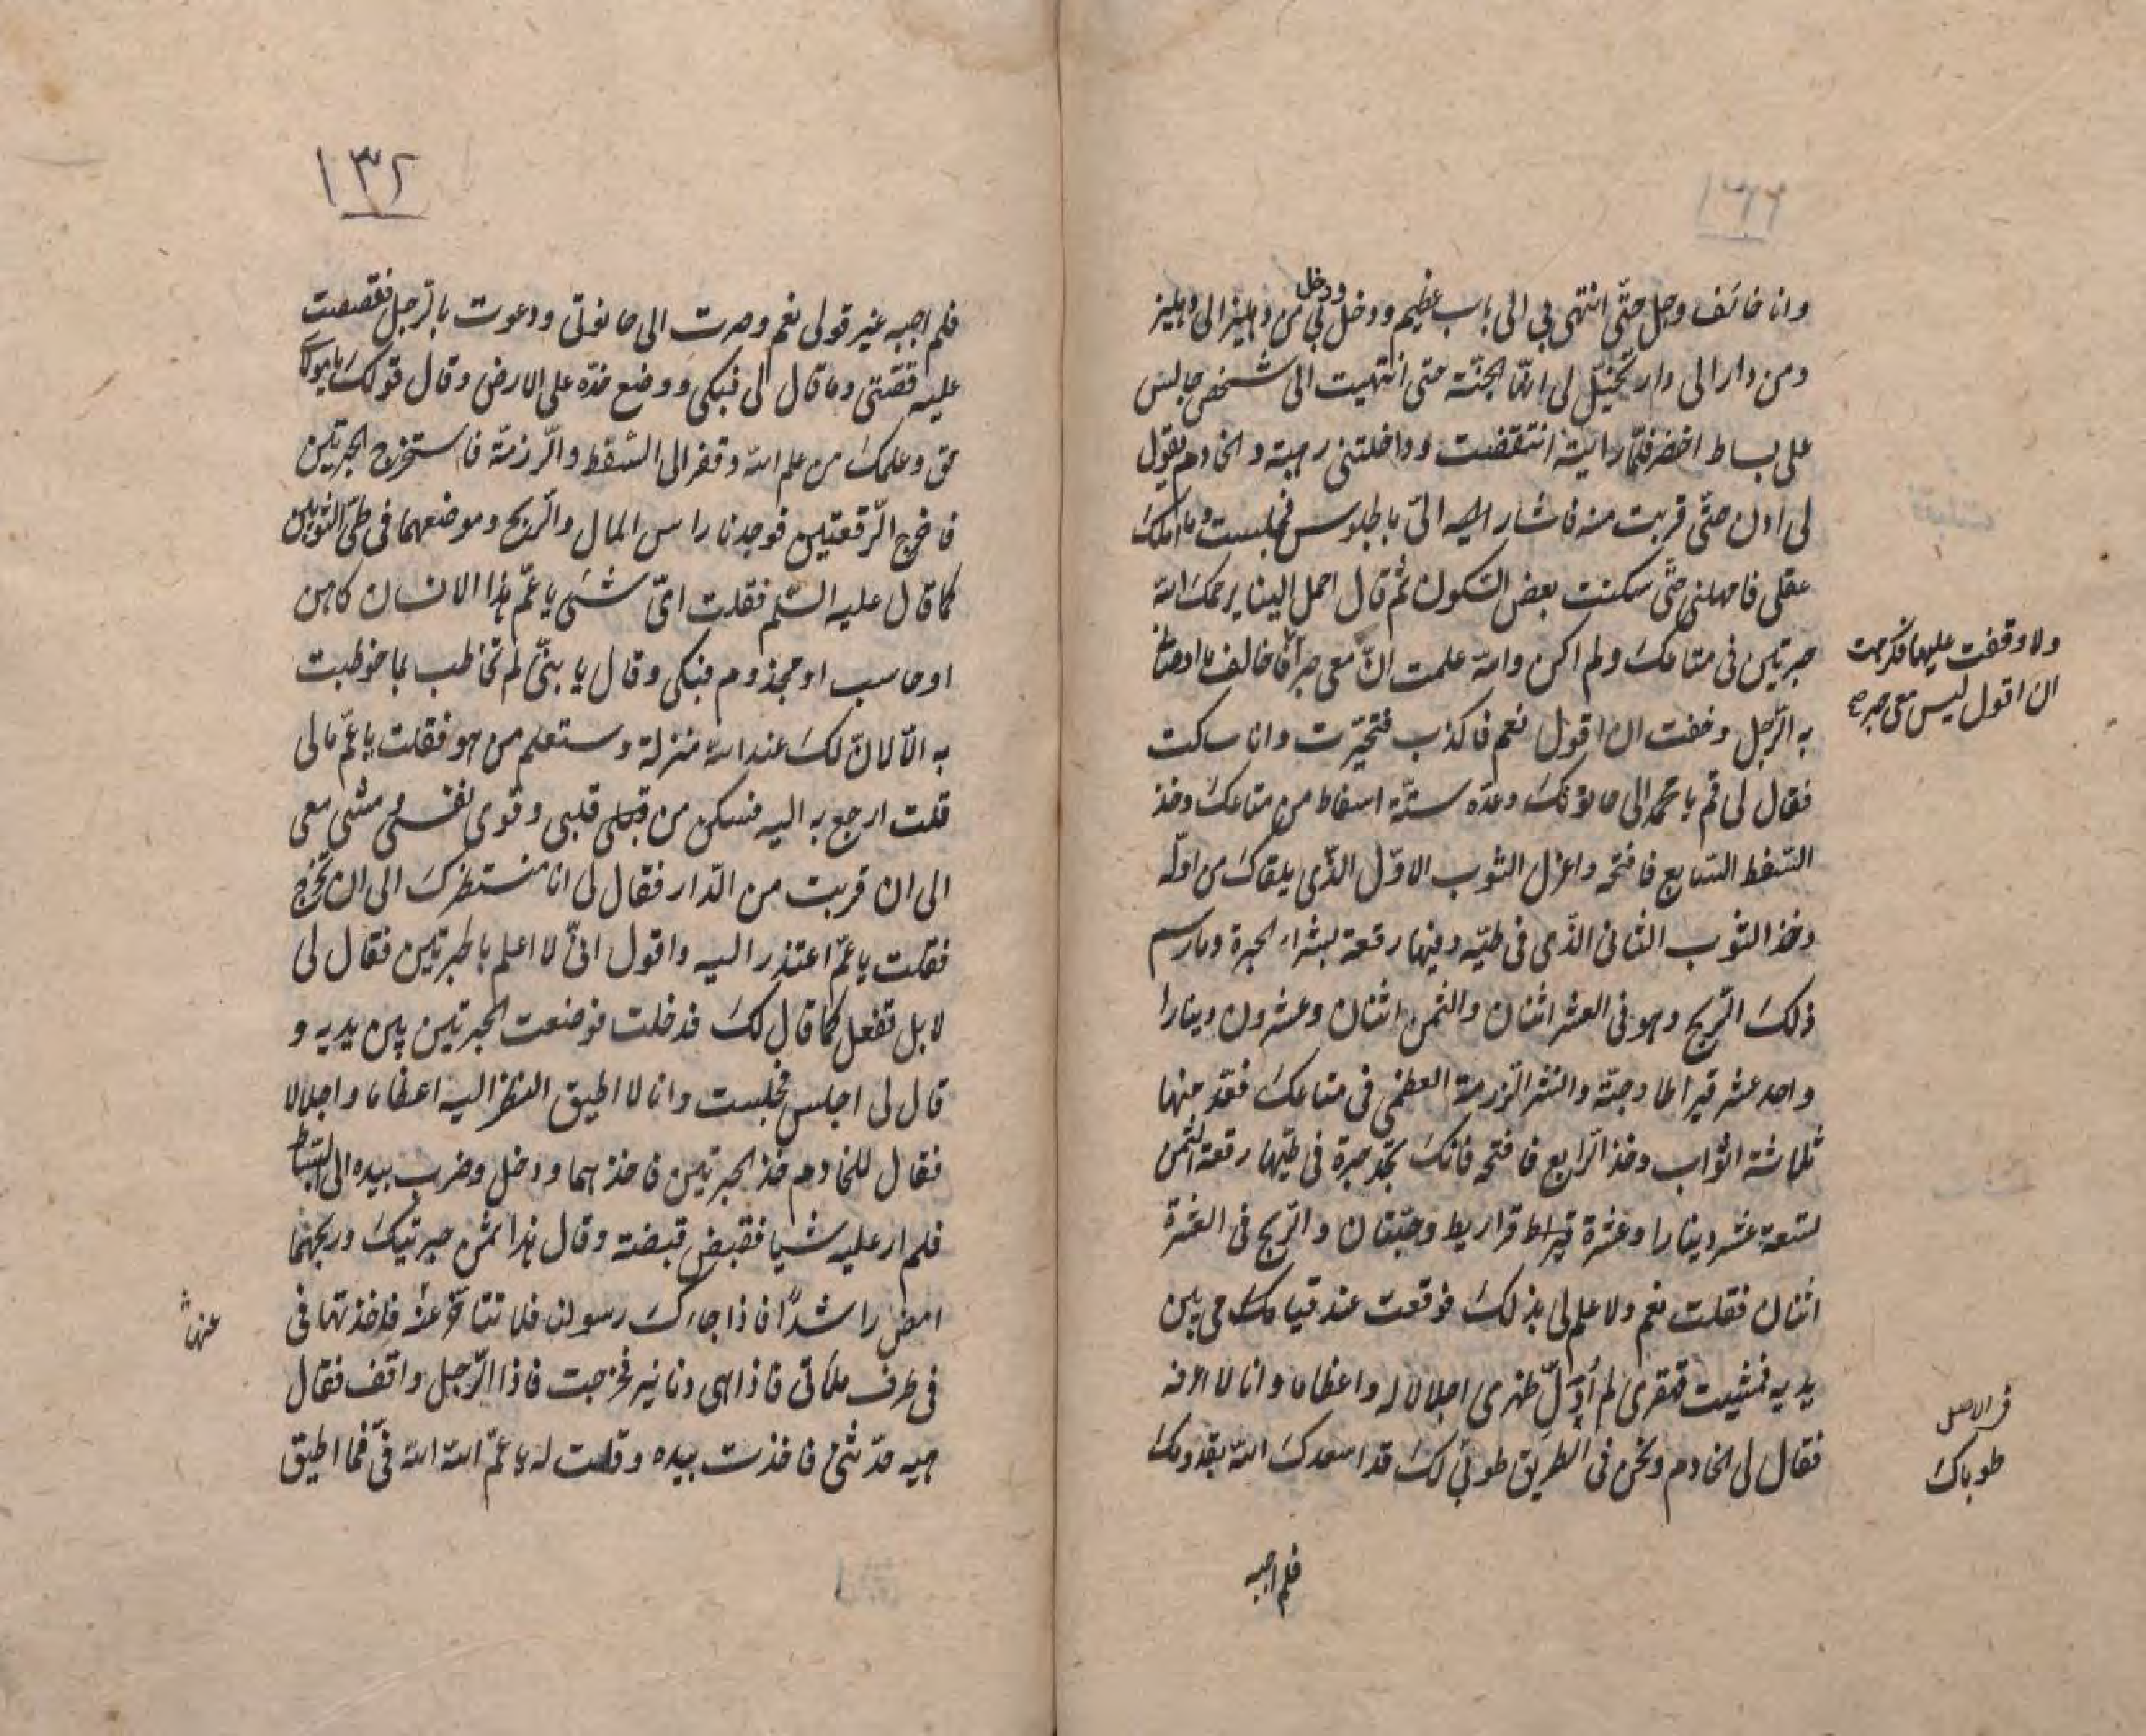 وانا خائف وجل حتّى انتهى بي الى باب عظيم ودخل بي من دهليز الى دهليز
ودخل
ومن دار الى دار تخيّل لى انّها الجنّة حتى انتهيت الى شخص جالس
على بساط اخضر فلمّا رايته انتقضت وداخلتنى رهبة والخادم يقول
لى ادن حتّى قربت منه فاشار اليه الىّ بالجلوس فجلست وما املك
عقلى فامهلنى حتّى سكنت بعض السّكون ثمّ قال احمل الينا يرحمك الله
حبرتين فى متاعك ولم اكن والله علمت انّ معى حبرا
ولا وقفت عليهما فكرهت
ان اقول ليس معى حبرة
به الرّجل وخفت ان اقول نعم فاكذب فتحيّرت وانا ساكت
فقال لى قم يا محمد الى حانوتك وعدّ ستّة اسفاط من متاعك وخذ
السّفط السّابع فافتحه واعزل الثوب الاوّل الذّى يلقاك من اوله
وخذ الثوب الثانى الذّى فى طيّه وفيها رقعة بشراء الحبرة وما رسم
ذلك الرّبح وهو فى العشر اثنان والثمن اثنان وعشرون دينارا
واحد عشر قيراطا وحبّة والنشر الرّزمة العظمى فى متاعك فعدّ منها
ثلاثة اثواب وخذ الرّابع فافتحه فانّك تجد حبرة فى طيّها رقعة الثمن
تسعة عشر دينارا وعشرة قيراط قراريط وحبّتان والرّبح فى العشرة
اثنان فقلت نعم ولا علم لى بذلك فوقعت عند قيامك من بين
يديه فمشيت قهقرى لم اولّ ظهرى اجلالا له واعظاما وانا لا اعرفه
فقال لى الخادم ونحن فى الطريق طوبى لك قد اسعدك الله بقدومك
فى الاصل
طوباك
فلم اجبه
١٣٢
فلم اجبه غير قولى نعم وصرت الى حانوتى ودعوت بالرّجل فقصصت
عليه قصّتى وما قال لى فبكى ووضع خدّه على الارض وقال قولك يا مولاى
حق وعلمك من علم الله وقفز الى السّفط والرّزمة فاستخرج الحبرتين
فاخرج الرّقعتين فوجدنا راس المال والرّبح وموضعهما فى طىّ الثوبين
كما قال عليه السّلم فقلت اىّ شىء يا عمّ هذا الانسان كاهن
او حاسب او مخدوم فبكى وقال يا بنىّ لم تخاطب بما خوطبت
به الّا لانّ لك عند الله منزلة وستعلم من هو فقلت يا عمّ مالى
قلت ارجع به اليه فسكن من قبلى قلبى وقوى نفسى ومشى معى
الى ان قربت من الدّار فقال لى انا منتظرك الى ان تخرج
فقلت يا عمّ اعتذر اليه واقول انّى لا اعلم بالحبرتين فقال لى
لا بل تفعل كما قال لك فدخلت فوضعت الحبرتين بين يديه و
قال لى اجلس فجلست وانا لا اطيق النظر اليه اعظاما واجلالا
فقال للخادم خذ الحبرتين فاخذهما ودخل وضرب بيده الى البساط
فلم ار عليه شيا فقبض قبضة وقال هذا ثمن حبرتيك وربحهما
امض راشدًا فاذا جاءك رسولنا فلا تتاخّر عنّا فاخذتها فى
عنها
فى طرف ملاءتى فاذا هى دنانير فخرجت فاذا الرّجل واقف فقال
هيه حدّثنى فاخذت بيده وقلت له يا عمّ الله الله فىّ فما اطيق